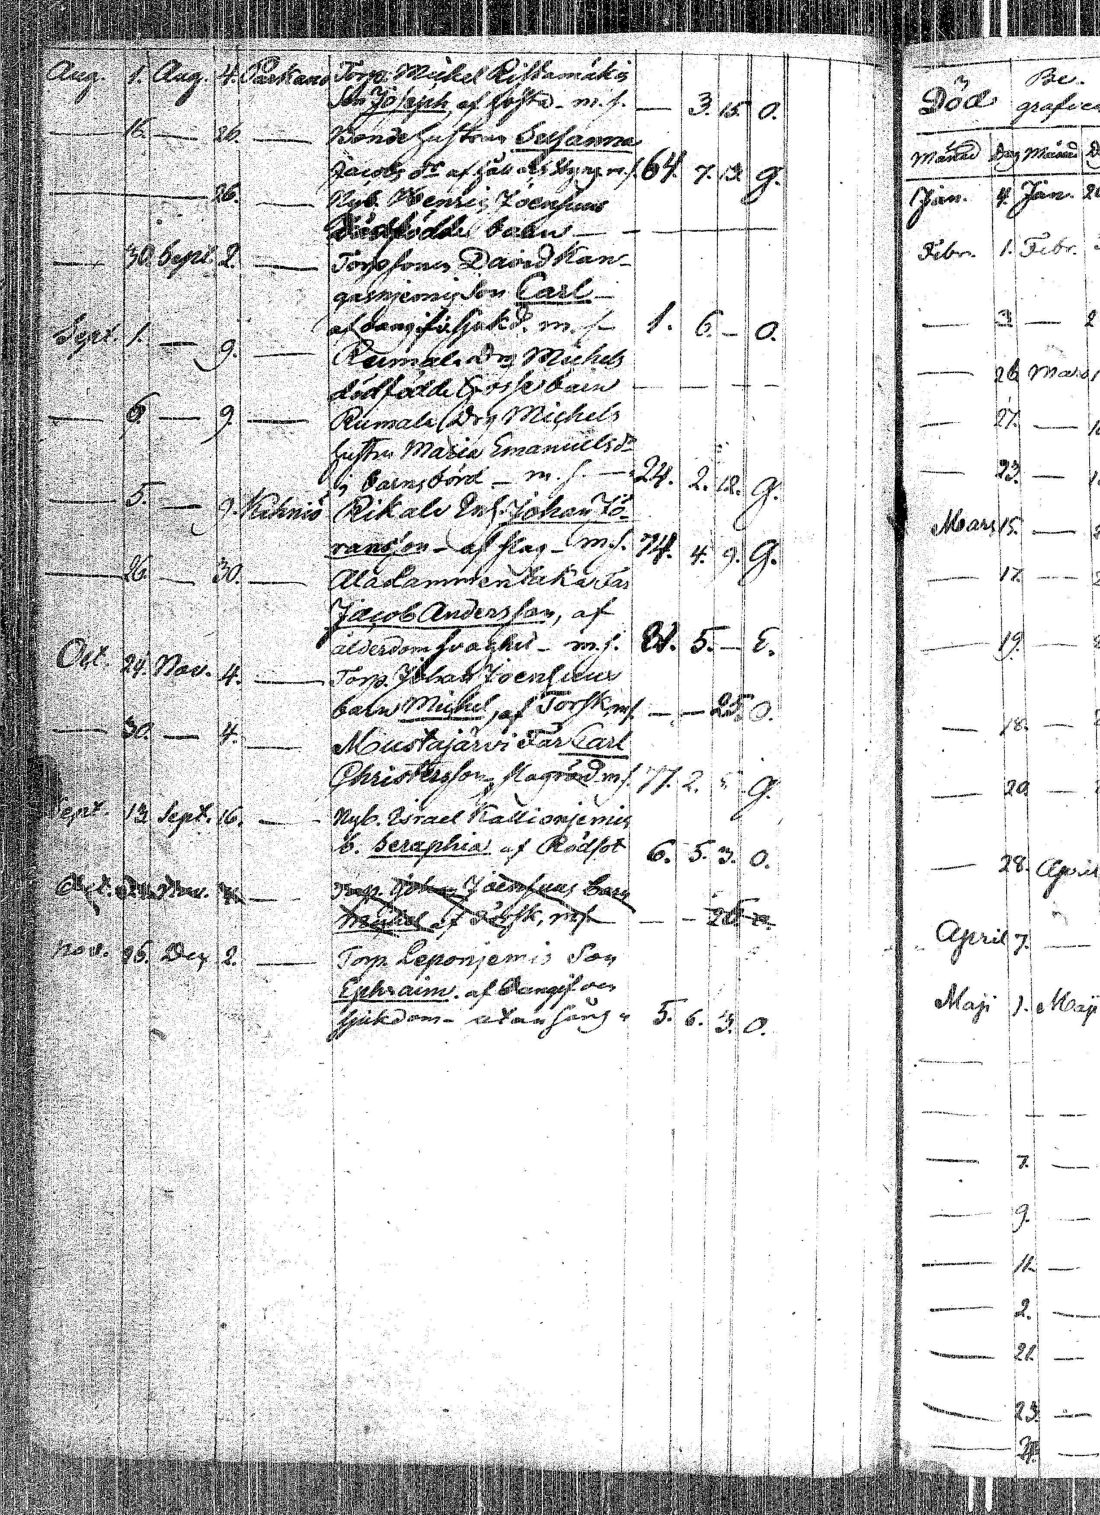 Aug. 1. Aug. 4. Parkano Torp. Michel Riskamäkis
Son Joseph af hosta - m. s. — 3. 15. O.
— 16. — 26. — Bonde hustrun Susanna
Jacobs dr af håll och styng m. s. 64. 7. 13. G.
— 26. — Nyb. Henric Joensuus
dödfödde barn — — — —
— 30. Sept. 2. — Torp sonen David Kan-
gasnjemis Son Carl
af okang. sjukd. m. s. 1. 6. — O.
Sept. 1. — 9. — Rumale Drg Michels
dödfödde Gosse barn — — — —
— 6. — 9. — Rumale Drg Michels
hustru Maria Emanuelsdr
i barnsbörd — m. s. — 24. 2. 18. G.
— 5. — 9. Kihniö Rikale Johan Jö-
ransson — af slag — m. s. 74. 4. 9. G.
— 26. — 30. — Aladammen Far
Jacob Andersson, af
ålderdoms svaghet — m. s. 81. 5. — E.
Oct. 24. Nov. 4. — Torp. Johan Joensuus
barn Michel, af Torsk, m. s. — — 25. O.
— 30. — 4. — Mustajärvi Far Carl
Christersson, Magröd m. s. 77. 2. 5. G.
Sept. 13. Sept. 16. — Nyb. Israel Kallionjemis
b. Seraphia af Rödsot 6. 5. 3. O.
Oct. 24. Nov. 4. — Torp. Johan Joensuus barn
Michel af Torsk, m. s. — — 25. O.
Nov. 25. Dec. 2. — Torp. Leponjemis Son
Ephraim. af okangifven
sjukdom — utan sång — 5. 6. 3. O.
Död Be-
grafven
Månad Dag Månad
Jan. 4. Jan. 20
Febr. 1. Febr.
— 3. — 2
— 26. Mars
— 27. —
— 23. —
Mars 15. —
— 17. —
— 19. —
— 18. —
— 20. —
— 28. April
April 7. —
Maji 1. Maji
— — —
— — —
— 7. —
— 9. —
— 11. —
— 2. —
— 21. —
— 23. —
— 24. —